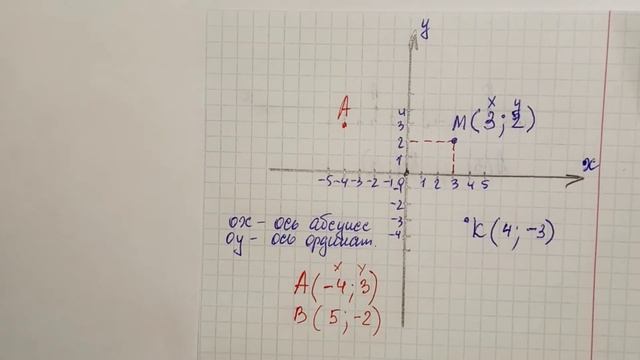 y
A
x y
M(3; 2)
4
3
2
1
x
-5 -4 -3 -2 -1 0 1 2 3 4 5
-2
-3
-4
K(4; -3)
ox - ось абсцисс
oy - ось ординат.
x y
A(-4; 3)
B(5; -2)